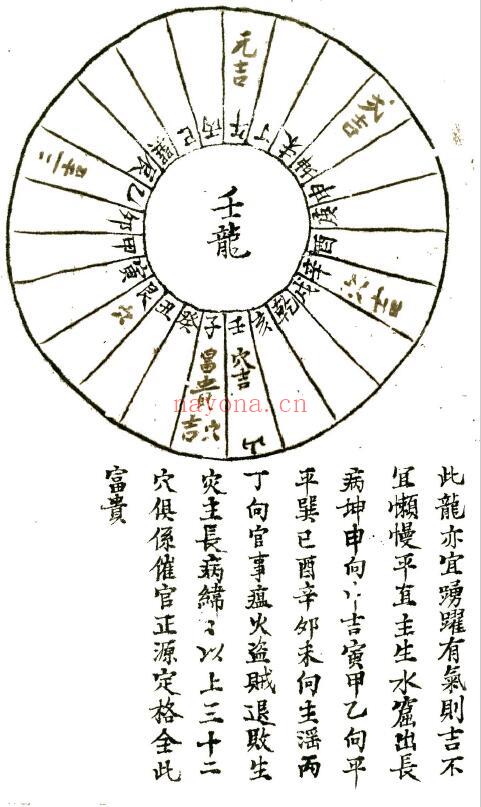 元吉
次吉
穴吉
富貴穴吉
壬龍
壬
子
癸
丑
艮
寅
甲
卯
乙
辰
巽
巳
丙
午
丁
未
坤
申
庚
酉
辛
戌
乾
亥
此龍亦宜踴躍有氣則吉不
宜懶慢平直主生水窟出長
病坤申向吉寅甲乙向平
平巽巳酉辛卯未向主淫丙
丁向官事瘟火盜賊退敗生
灾主長病緯〻以上三十二
穴俱係催官正源定格全此
富貴
nayona.cn